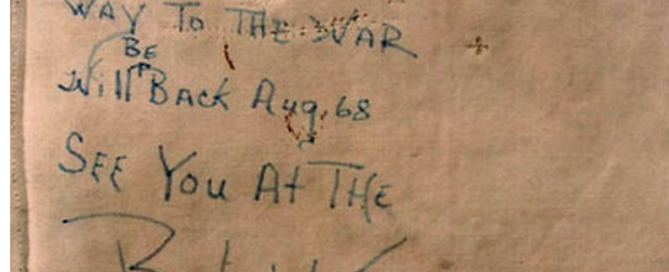 WAY To THE WAR
BE
Will Back Aug, 68
SEE You At THE